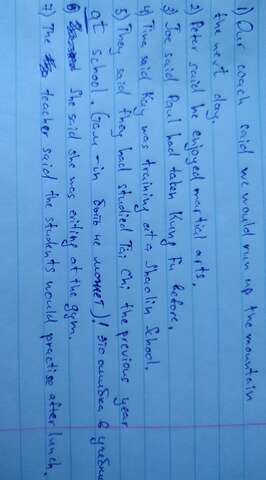 1) Our coach said we would run up the mountain
the next day.
2) Peter said he enjoyed martial arts.
3) Joe said Paul had taken Kung Fu before.
4) Tina said Kay was training at a Shaolin School.
5) They said they had studied Tai Chi the previous year
at school. (там -in быть не может)! это ошибка в учебни
6) She said she was eating at the gym.
7) The teacher said the students would practise after lunch.